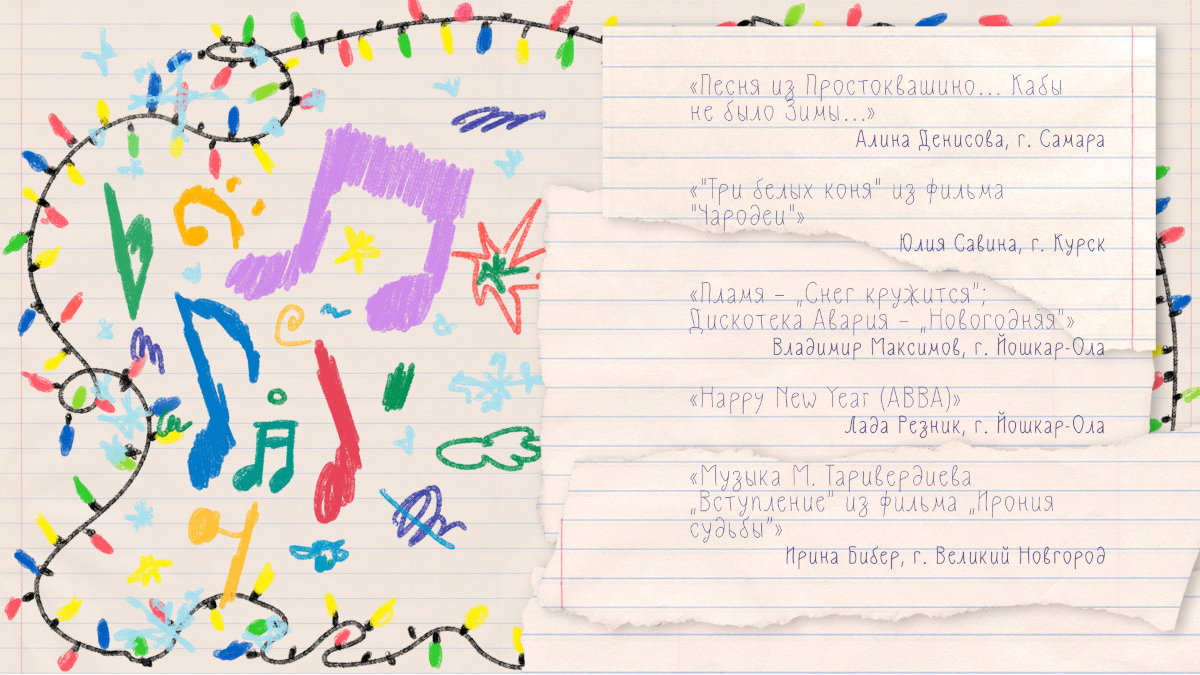 «Песня из Простоквашино... Кабы
не было Зимы...»
Алина Денисова, г. Самара
«"Три белых коня" из фильма
"Чародеи"»
Юлия Савина, г. Курск
«Пламя – „Снег кружится";
Дискотека Авария – „Новогодняя"»
Владимир Максимов, г. Йошкар-Ола
«Happy New Year (ABBA)»
Лада Резник, г. Йошкар-Ола
«Музыка М. Таривердиева
„Вступление" из фильма „Ирония
судьбы"»
Ирина Бибер, г. Великий Новгород